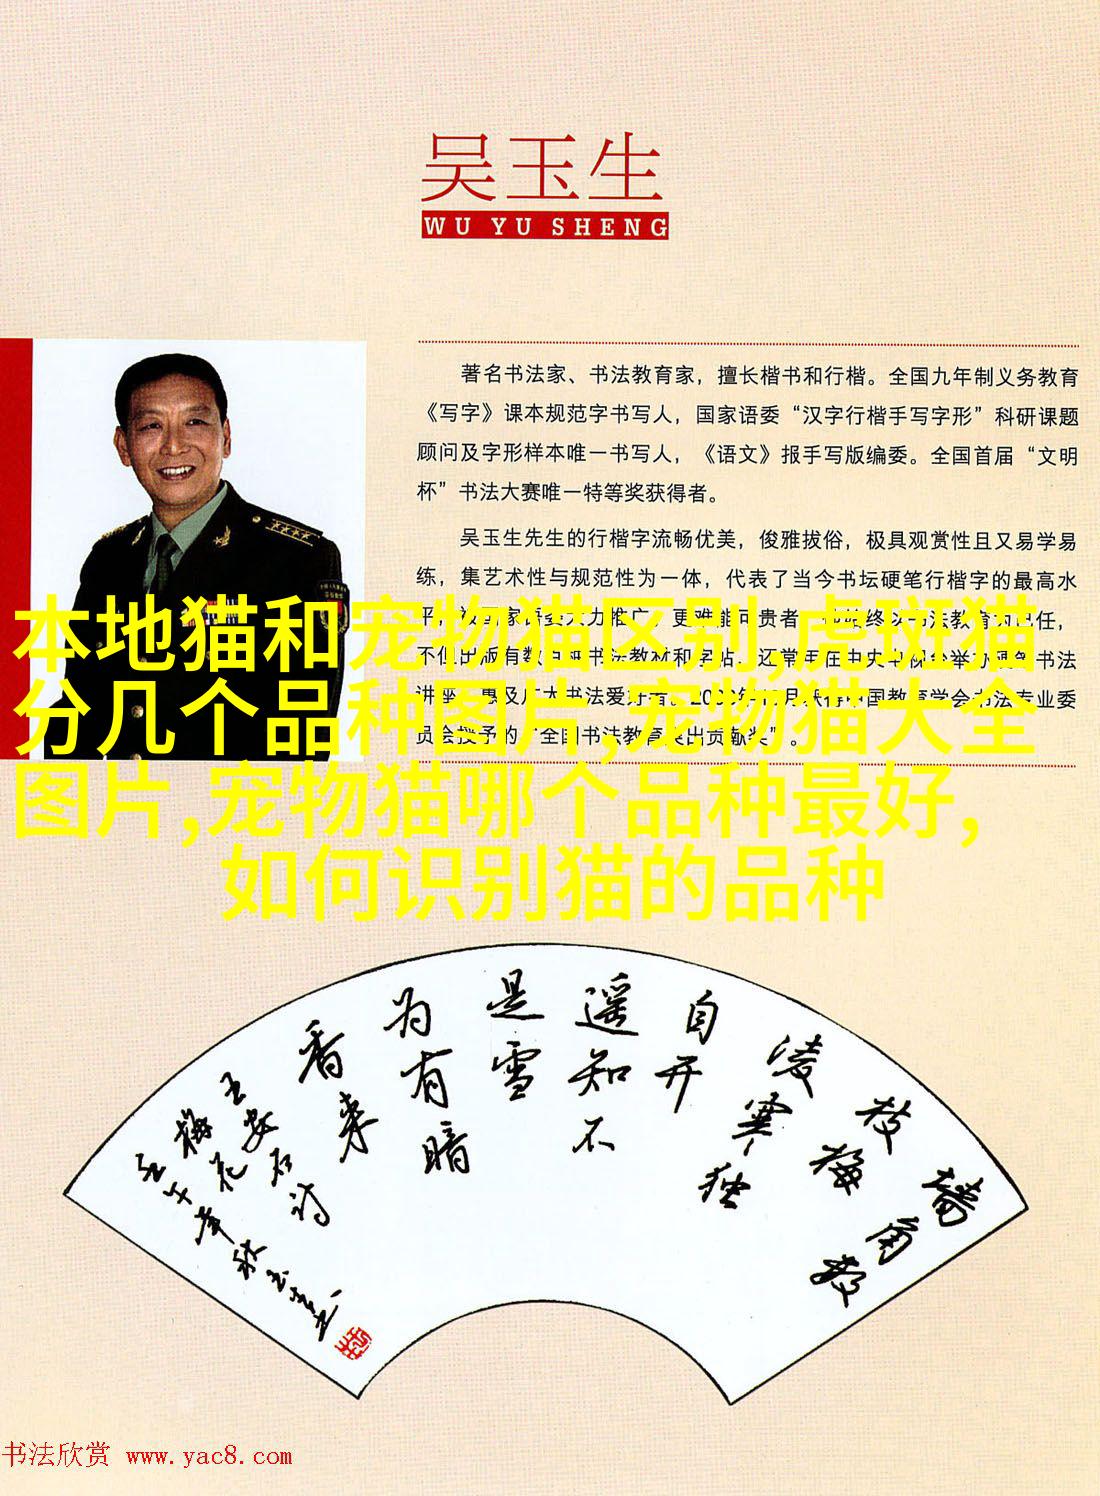 吴玉生
WU YU SHENG
著名书法家、书法教育家，擅长楷书和行楷。全国九年制义务教育
《写字》课本规范字书写人，国家语委“汉字行楷手写字形”科研课题
顾问及字形样本唯一书写人，《语文》报手写版编委。全国首届“文明
杯”书法大赛唯一特等奖获得者。
吴玉生先生的行楷字流畅优美，俊雅拔俗，极具观赏性且又易学易
练，集艺术性与规范性为一体，代表了当今书坛硬笔行楷字的最高水
本地猫和宠物猫区别,虎斑猫
分几个品种图片,宠物猫大全
图片,宠物猫哪个品种最好,
如何识别猫的品种
墙角数
枝梅
凌寒独
自开
遥知不
是雪
为有暗
香来
王安石诗
梅花
壬午年秋玉生
书法欣赏 www.yac8.com